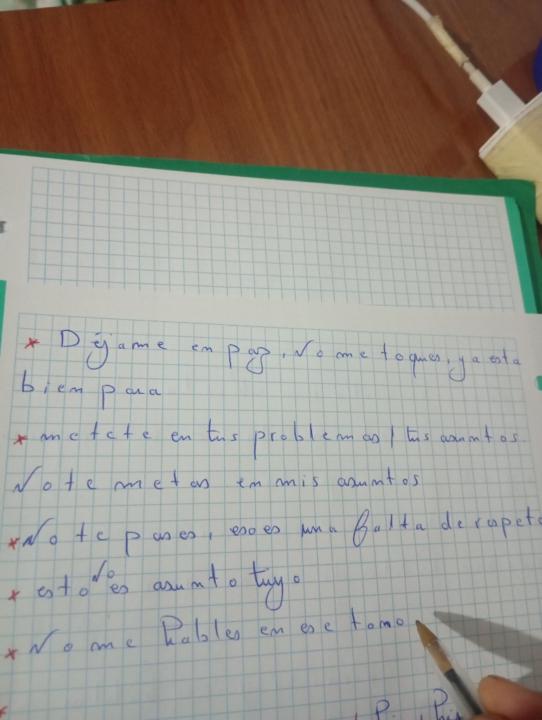 * Déjame en paz, No me toques, ya esta
bien para
* metete en tus problemas / tus asuntos.
No te metas en mis asuntos
* No te pases, eso es una falta de rapeto
* esto No es asunto tuyo
* No me hables en ese tono